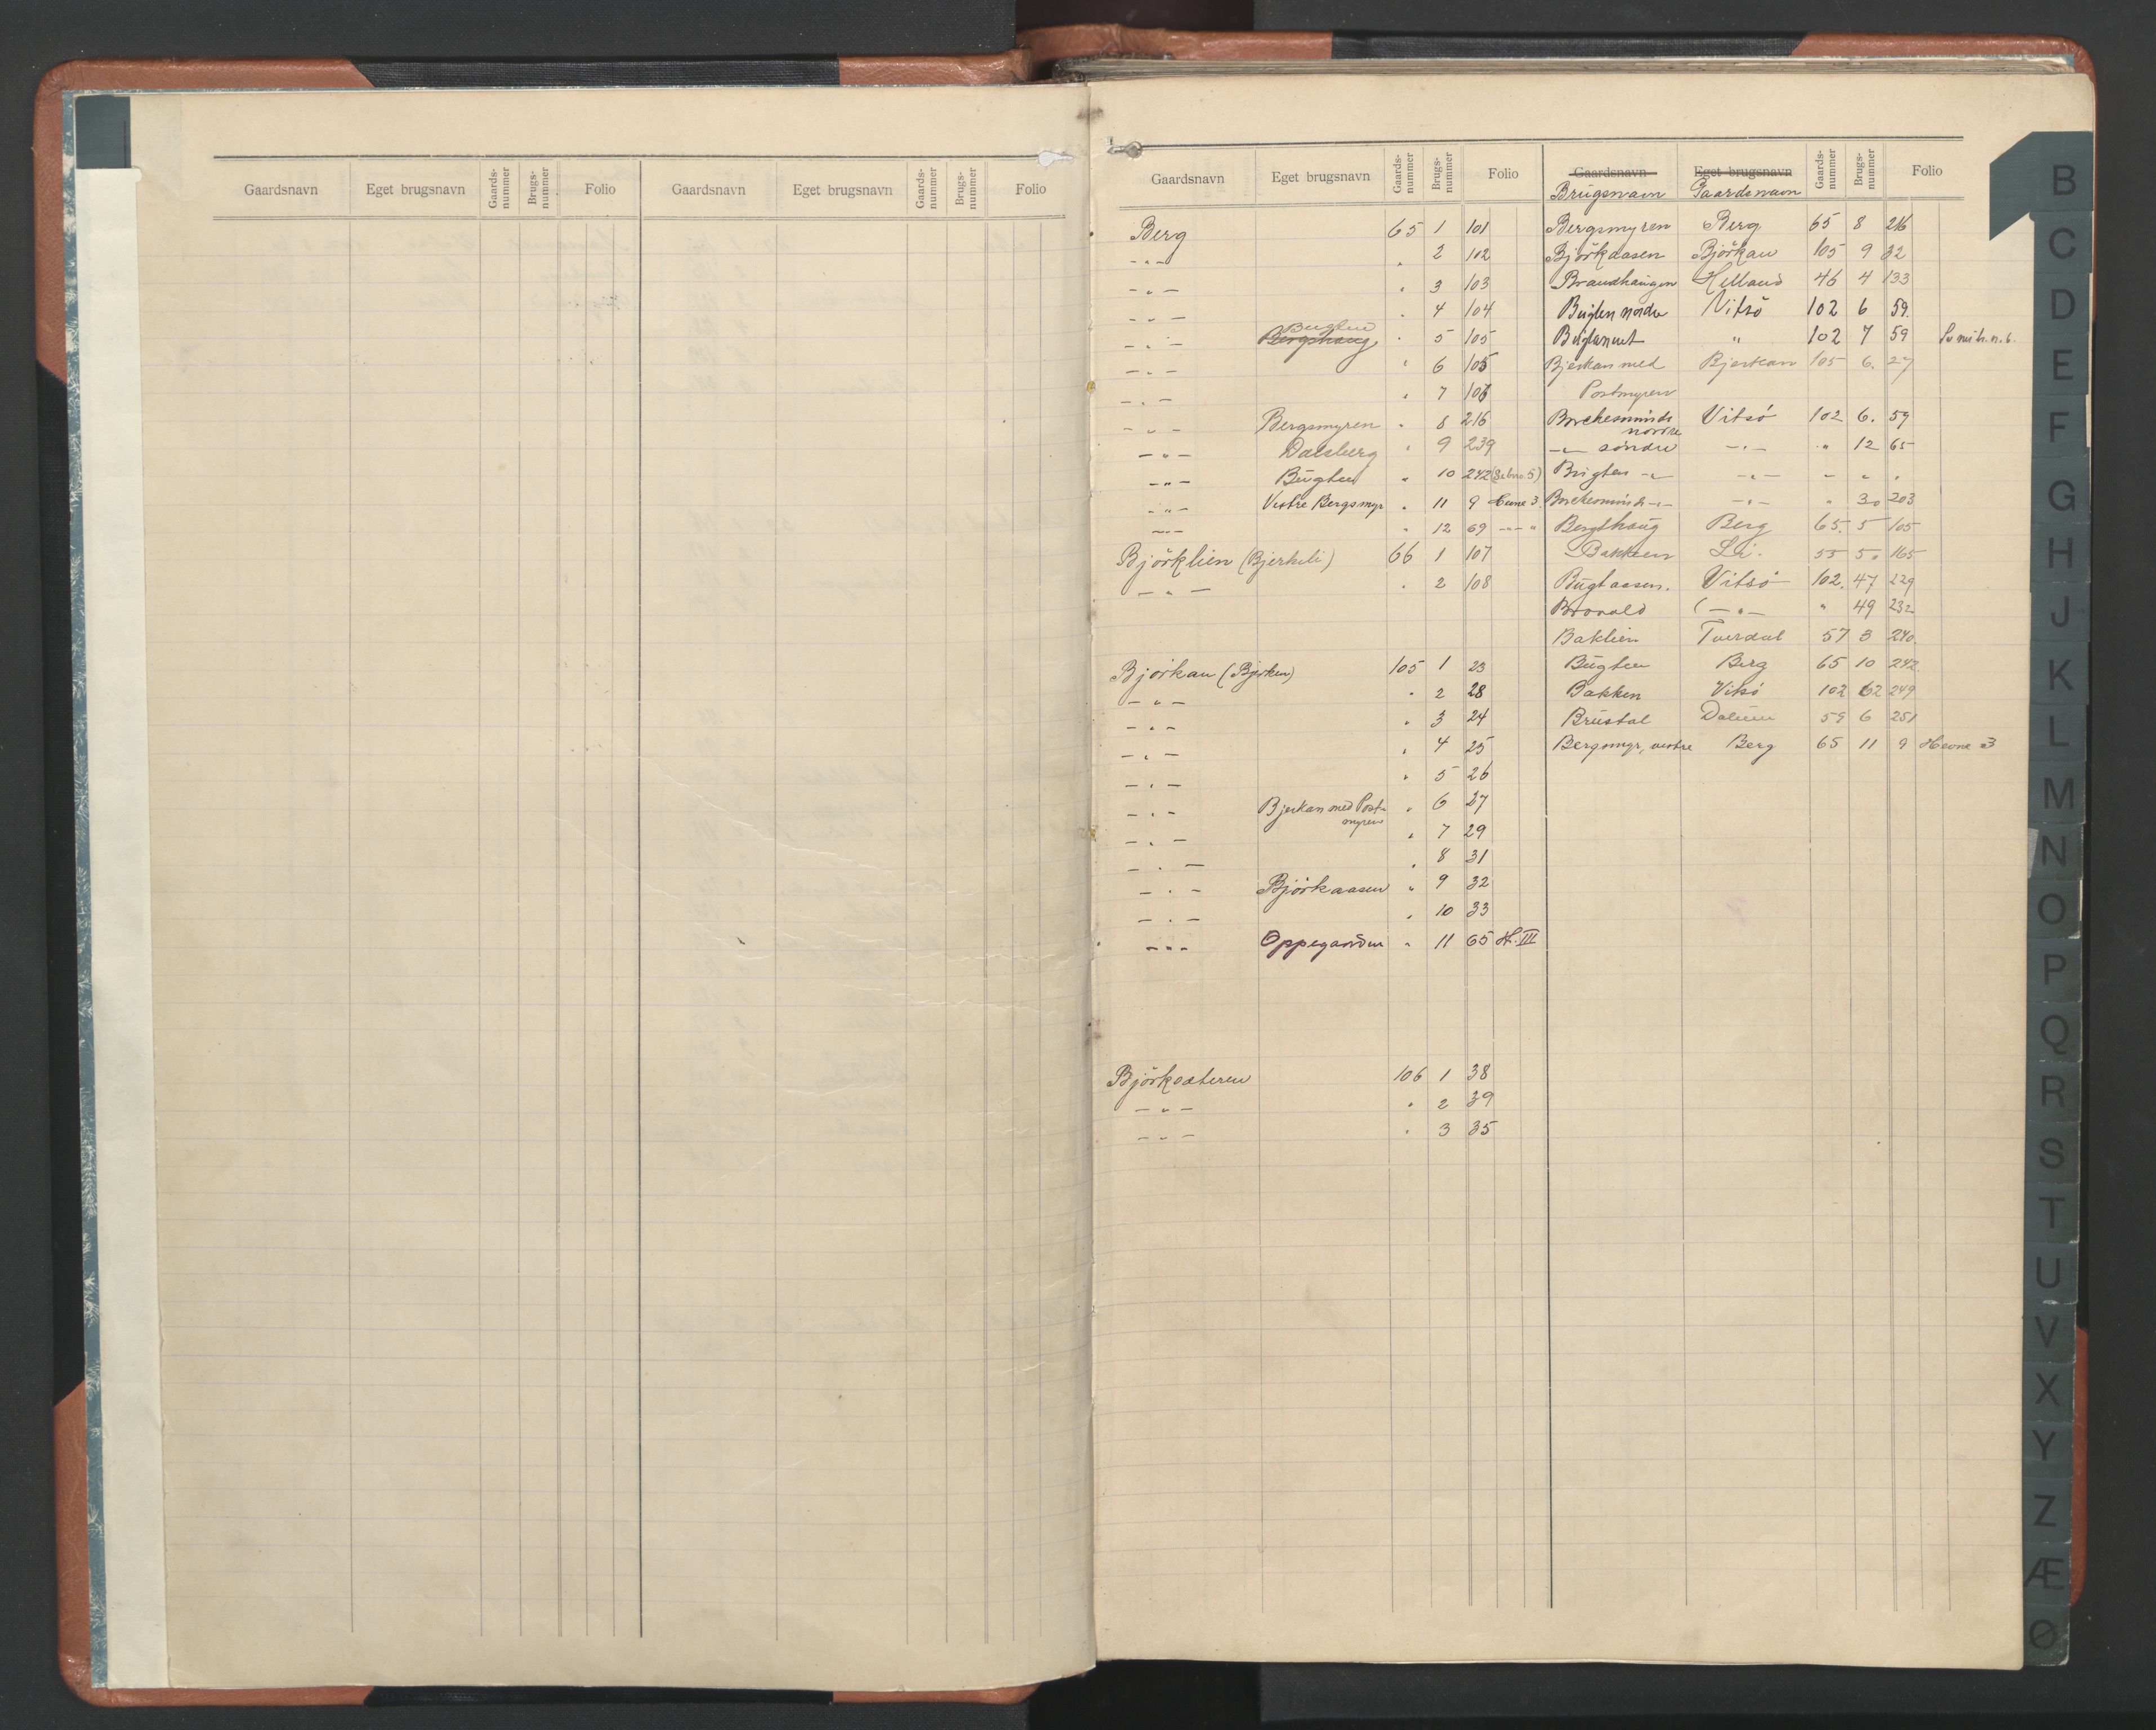 Gaardsnavn Eget brugsnavn Gaards-nummer Brugs-nummer Folio Gaardsnavn Eget brugsnavn Gaards-nummer Brugs-nummer Folio
Gaardsnavn Eget brugsnavn Gaards-nummer Brugs-nummer Folio
Berg 65 1 101
-"- " 2 102
-"- " 3 103
-"- " 4 104
-"- Bugten Bergshaug " 5 105
-"- " 6 105
-"- " 7 106
-"- Bergsmyren " 8 216
-"- Dalsberg " 9 239
-"- Bugten " 10 242 (Se bno. 5)
-"- Vestre Bergsmyr " 11 9 Hevne 3.
-"- " 12 69 -"- "
Björklien (Bjerkeli) 66 1 107
-"- " 2 108
Björkan (Bjerken) 105 1 23
-"- " 2 28
-"- " 3 24
-"- " 4 25
-"- " 5 26
-"- Bjerkan med Post-myren " 6 27
-"- " 7 29
-"- " 8 31
-"- Björkaasen " 9 32
-"- " 10 33
-"- Oppegarden " 11 65 H. III
Björksæteren 106 1 38
-"- " 2 39
-"- " 3 35
Gaardsnavn Eget brugsnavn Gaards-nummer Brugs-nummer Folio
Brugsnavn Gaardsnavn
Bergsmyren Berg 65 8 216
Björkaasen Björkan 105 9 32
Brandhaugen Helland 46 4 133
Bugten nordre Vitsö 102 6 59.
" 102 7 59
Bjerkan med Bjerkan 105 6. 27
Postmyren
nordre Vitsö 102 6. 59
-"- söndre -"- " 12 65
Bugten -"- -"- - " "
-"- " 30 203
Bergshaug Berg 65. 5 105
Bakken Li. 55 5. 165
Bugtaasen. Vitsö 102. 47 229
Brovold -"- " 49 232
Baklien Tverdal 57 3 240.
Bugten Berg 65 10 242.
Bakken Vitsö 102 62 249
Brustal 59 6 251
Bergsmyr, vestre Berg 65 11 9 Hevne 3
B
C
D
E
F
G
H
J
K
L
M
N
O
P
Q
R
S
T
U
V
X
Y
Z
Æ
Ø